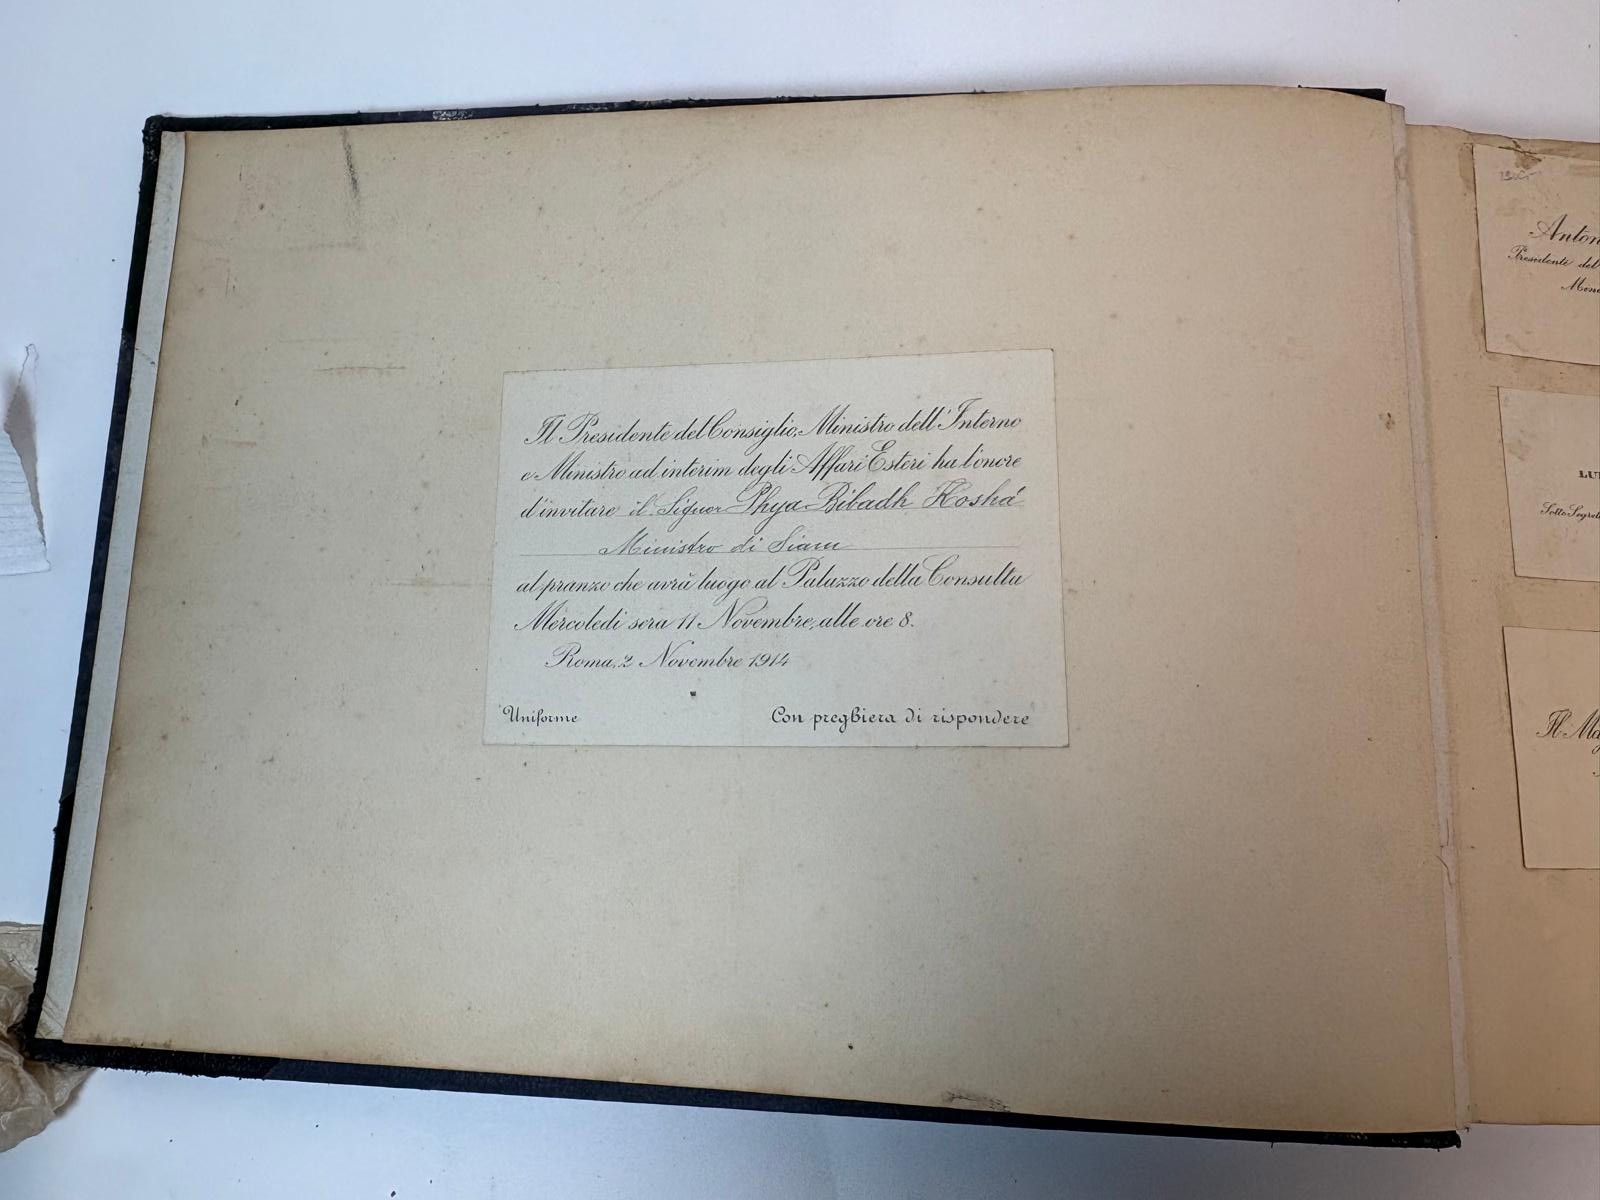 Il Presidente del Consiglio, Ministro dell'Interno
e Ministro ad interim degli Affari Esteri ha l'onore
d'invitare il Signor Phya Bibadh Kosha
Ministro di Siam
al pranzo che avrà luogo al Palazzo della Consulta
Mercoledì sera 11 Novembre, alle ore 8.
Roma, 2 Novembre 1914
Uniforme
Con preghiera di rispondere
Anton
Presidente del
LU
Il Ma